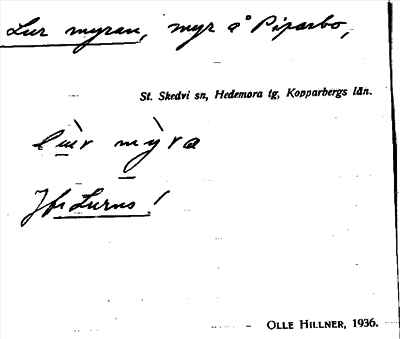 Lur myran, myr å Piparbo,
St. Skedvi sn, Hedemora tg, Kopparbergs län.
lù̲r m̲ỳra
Jfr Lurns!
OLLE HILLNER, 1936.